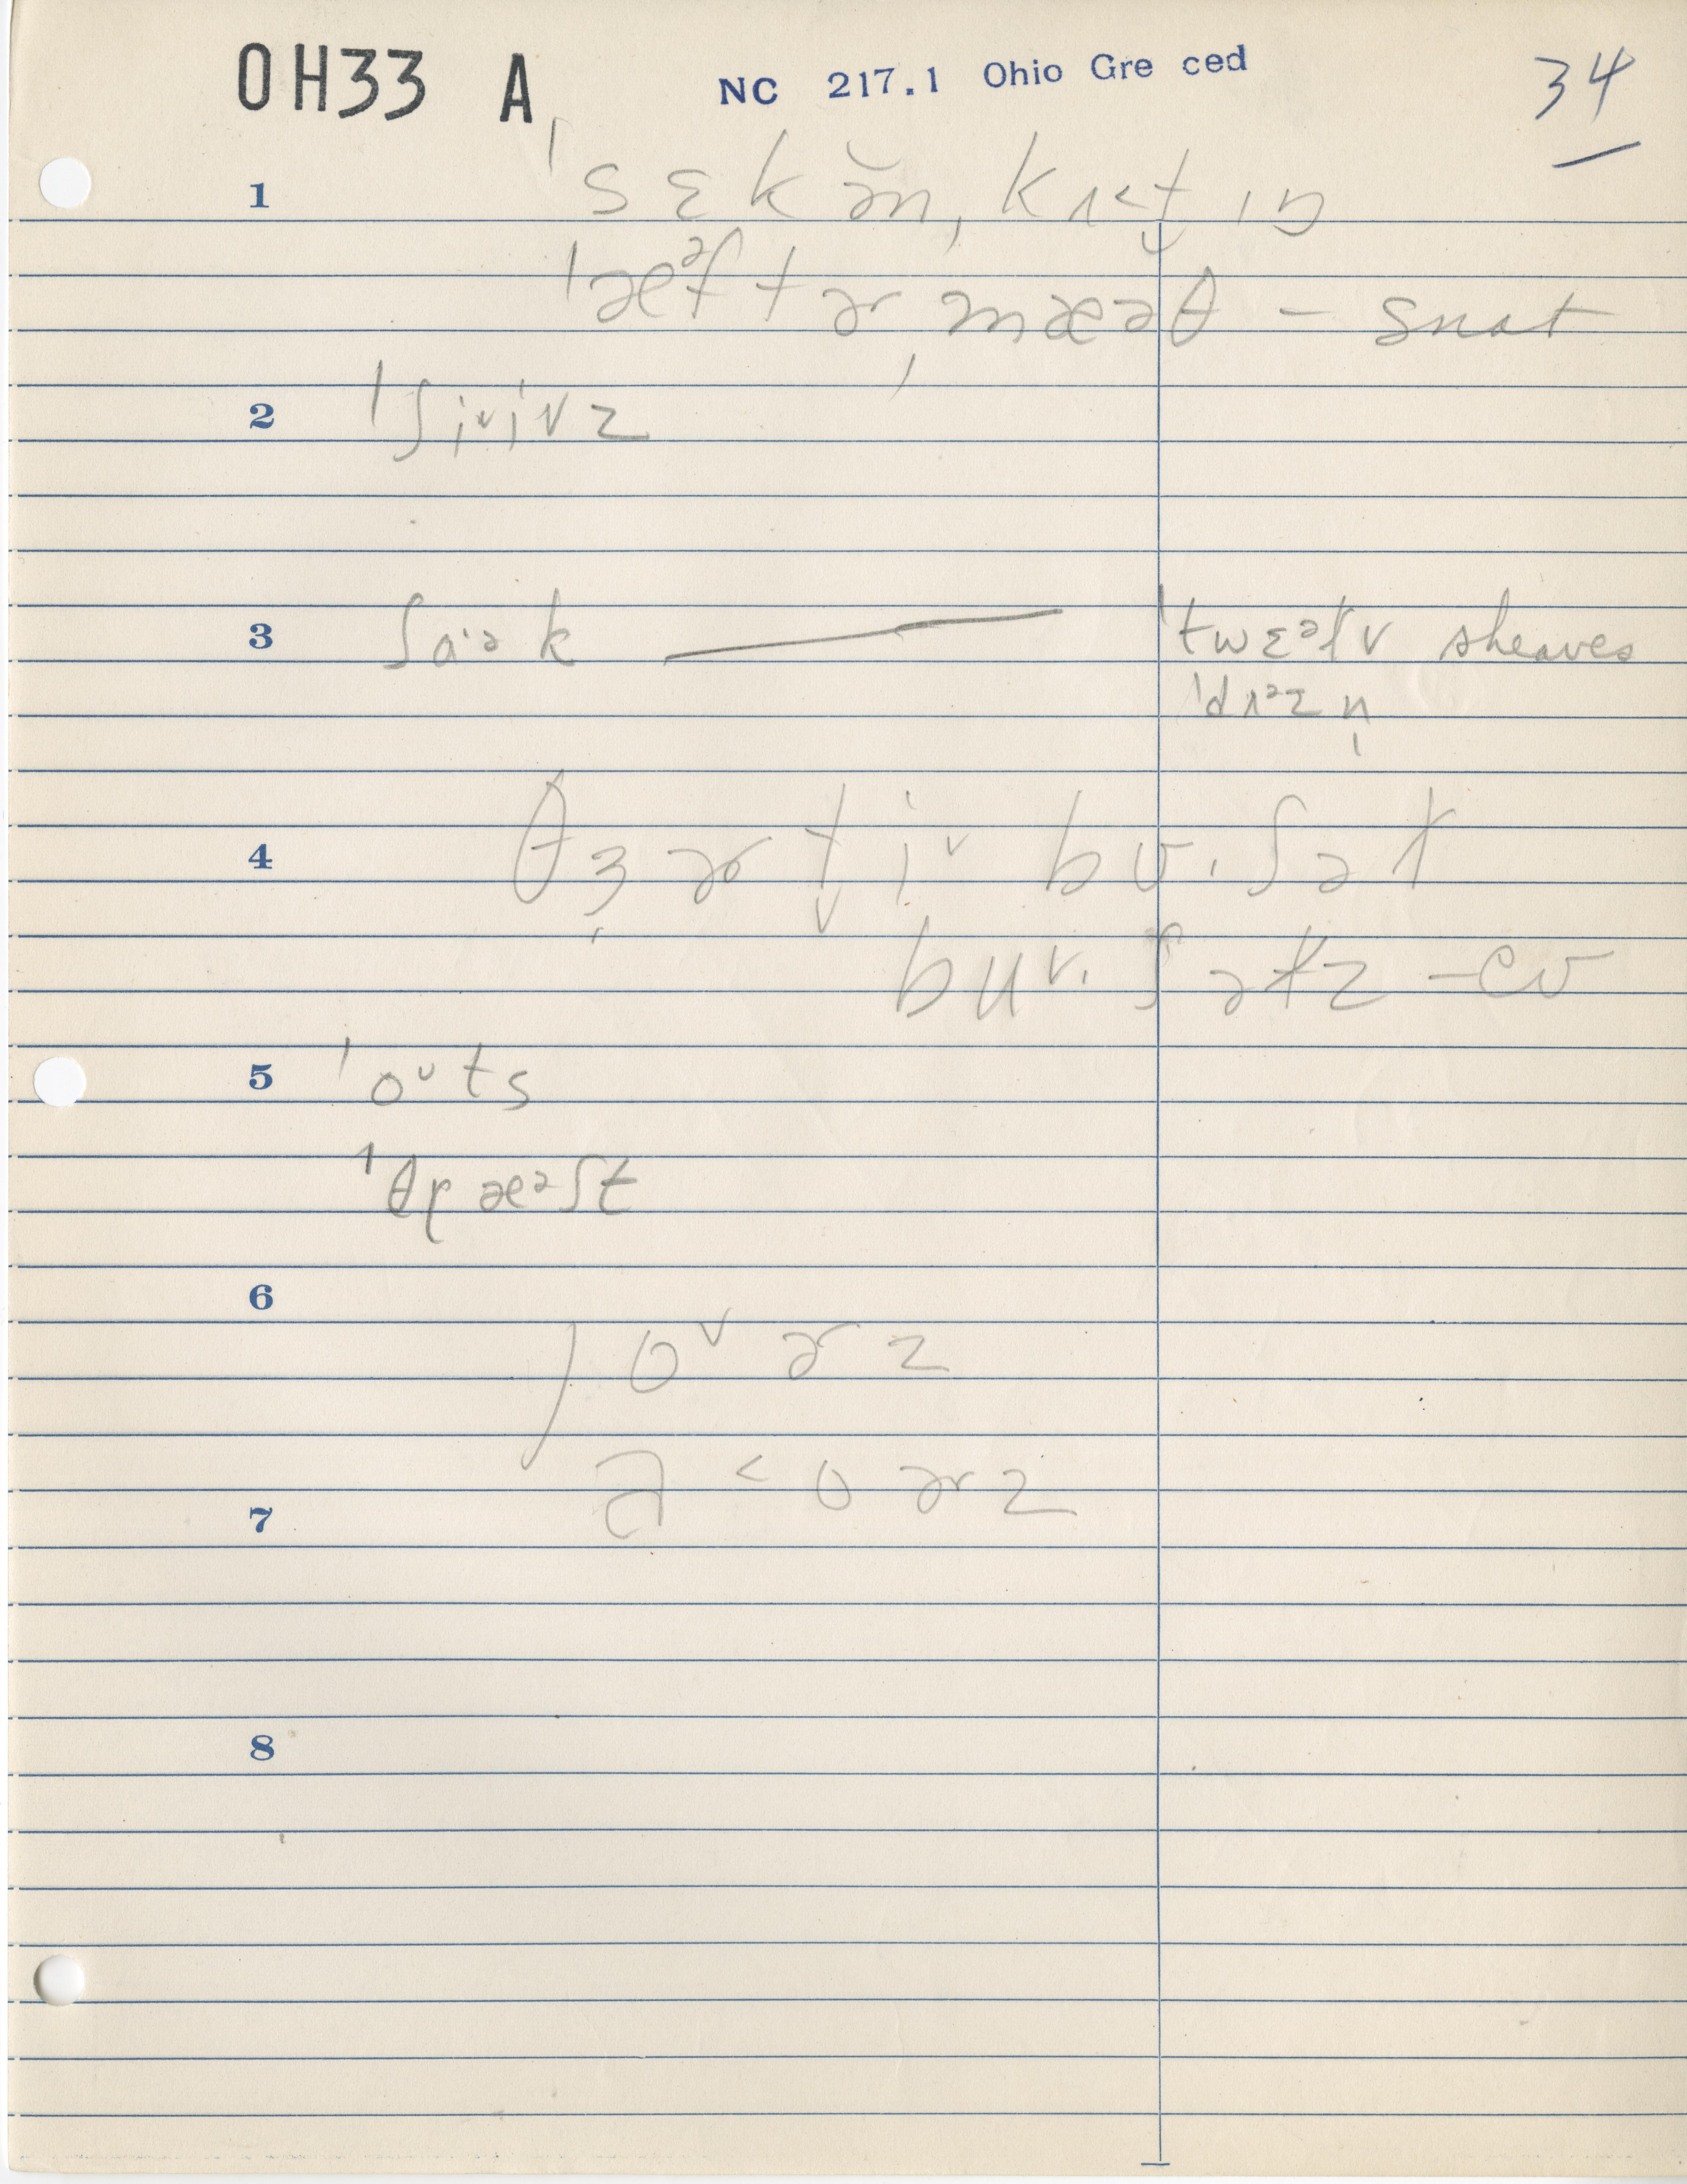 OH33 A NC 217.1 Ohio Gre ced 34
1 ˈsɛkə̆n ˌkʌ˂t̬ ɪŋ
ˈæᵊftɚ ˌmæəθ – snat
2 ˈʃi̯ˇi̯vz
3 ʃaˑək ˈtwɛᵊɫv sheaves
ˈdʌᵊzn̩
4 θɜ̣ɚt̬iˇ bʊ·ʃəɫ
buˇ·ʃəɫz – cv
5 ˈoᵘts
ˈθɾæᵊʃt
6
oˇɚz
7 ə˂oɚz
8